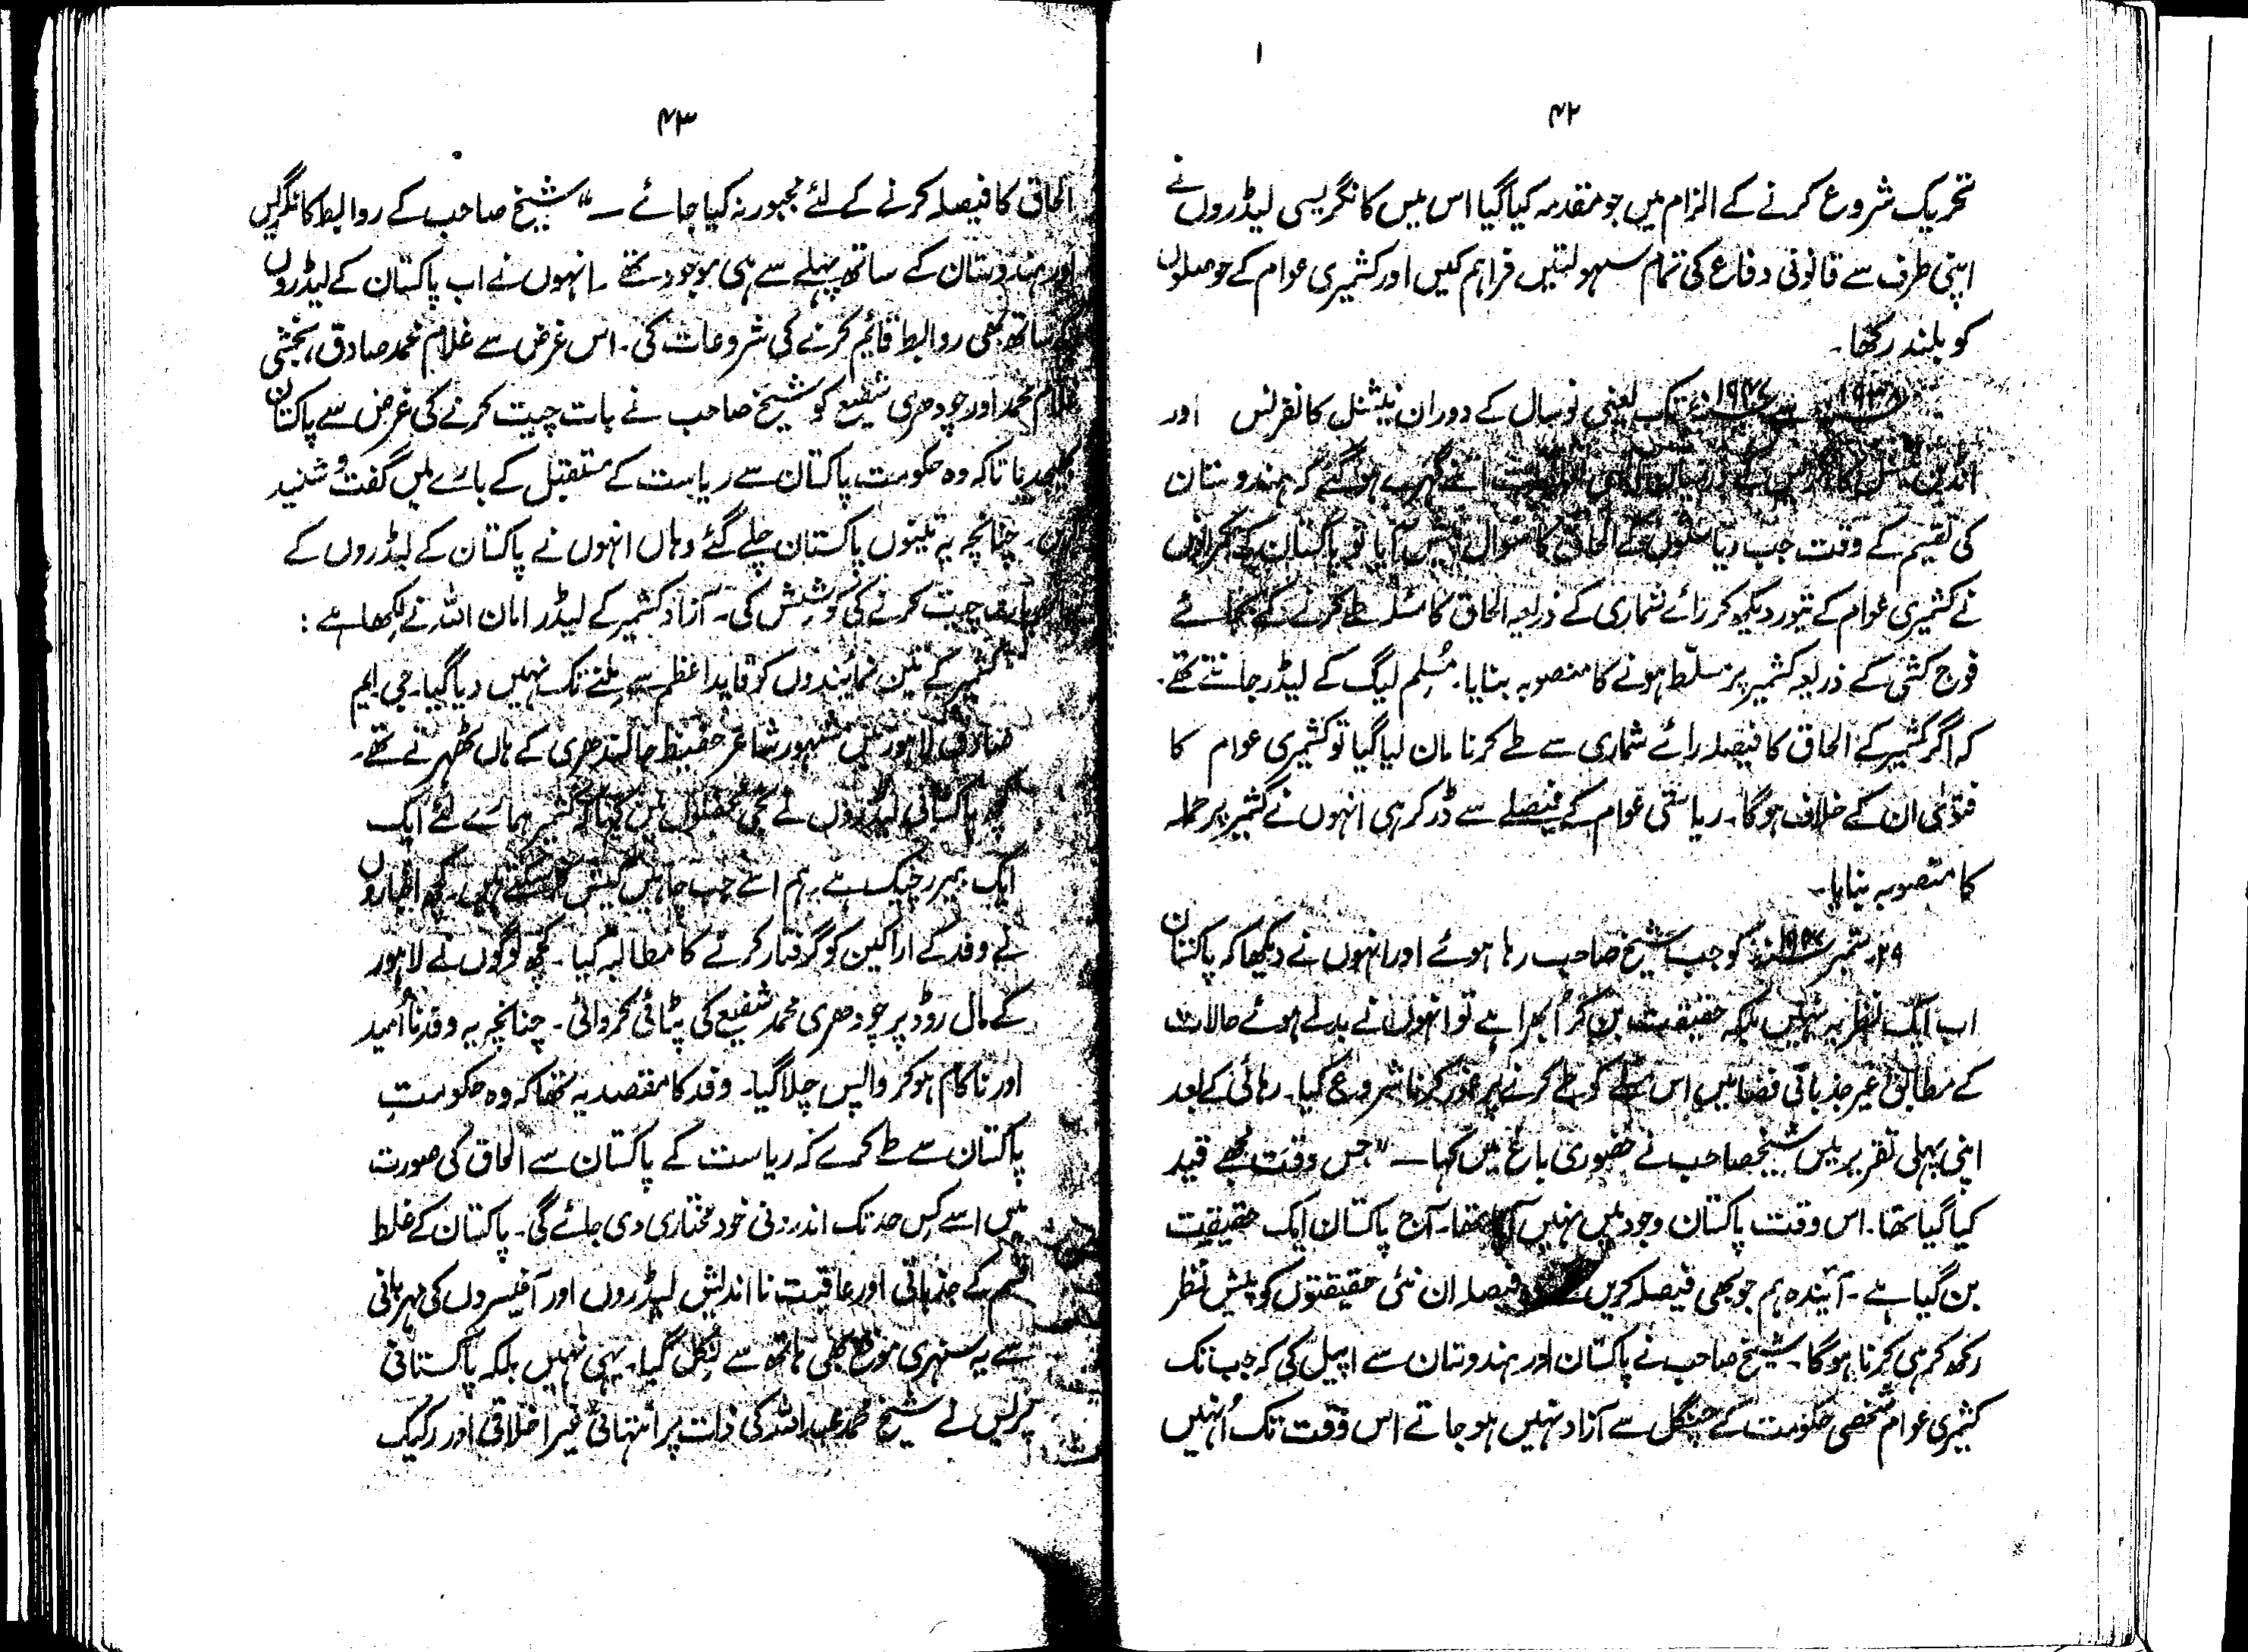 ۴۲
تحریک شروع کرنے کے الزام میں جو مقدمہ کیا گیا اس میں کانگریسی لیڈروں نے
اپنی طرف سے قانونی دفاع کی تمام سہولتیں فراہم کیں اور کشمیری عوام کے حوصلوں
کو بلند رکھا۔
۱۹۳۸ء سے ۱۹۴۷ء تک یعنی نو سال کے دوران نیشنل کانفرنس اور
انڈین نیشنل کانگریس کے درمیان اتنے گہرے ہو گئے کہ ہندوستان
کی تقسیم کے وقت جب ریاستوں کے الحاق کا سوال پیش آیا تو پاکستان کے حکمرانوں
نے کشمیری عوام کے تیور دیکھ کر رائے شماری کے ذریعہ الحاق کا مسئلہ طے کرنے کے بجائے
فوج کشی کے ذریعہ کشمیر پر مسلّط ہونے کا منصوبہ بنایا۔ مُسلم لیگ کے لیڈر جانتے تھے۔
کہ اگر کشمیر کے الحاق کا فیصلہ رائے شماری سے طے کرنا مان لیا گیا تو کشمیری عوام کا
فتویٰ ان کے خلاف ہوگا۔ ریاستی عوام کے فیصلے سے ڈر کر ہی انہوں نے کشمیر پر حملہ
کا منصوبہ بنایا۔
۲۹ ستمبر ۱۹۴۷ء کو جب شیخ صاحب رہا ہوئے اور انہوں نے دیکھا کہ پاکستان
اب ایک نظریہ نہیں بلکہ حقیقت بن کر اُبھرا ہے تو انہوں نے بدلے ہوئے حالات
کے مطابق غیر جذباتی فضا میں اس مسئلے کو طے کرنے پر غور کرنا شروع کیا۔ رہائی کے بعد
اپنی پہلی تقریر میں شیخ صاحب نے حضوری باغ میں کہا — "جس وقت مجھے قید
کیا گیا تھا۔ اس وقت پاکستان وجود میں نہیں آیا تھا۔ آج پاکستان ایک حقیقت
بن گیا ہے۔ آیندہ ہم جو بھی فیصلہ کریں فیصلہ ان نئی حقیقتوں کو پیش نظر
رکھ کر ہی کرنا ہوگا۔ شیخ صاحب نے پاکستان اور ہندوستان سے اپیل کی کہ جب تک
کشمیری عوام شخصی حکومت کے چنگل سے آزاد نہیں ہو جاتے اس وقت تک اُنہیں
۴۳
الحاق کا فیصلہ کرنے کے لئے مجبور نہ کیا جائے —" شیخ صاحب کے روابط کانگریس
اور ہندوستان کے ساتھ پہلے سے ہی موجود تھے۔ انہوں نے اب پاکستان کے لیڈروں
کے ساتھ بھی روابط قائم کرنے کی شروعات کی۔ اس غرض سے غلام محمد صادق، بخشی
غلام محمد اور چودھری شفیع کو شیخ صاحب نے بات چیت کرنے کی غرض سے پاکستان
بھیجدیا تاکہ وہ حکومت پاکستان سے ریاست کے مستقبل کے بارے میں گفت و شنید
کریں۔ چنانچہ یہ تینوں پاکستان چلے گئے وہاں انہوں نے پاکستان کے لیڈروں کے
بات چیت کرنے کی کوشش کی۔ آزاد کشمیر کے لیڈر امان اللہ نے لکھا ہے:
"کشمیر کے تین نمائندوں کو قاید اعظم سے ملنے تک نہیں دیا گیا۔ جی ایم
صادق لاہور میں مشہور شاعر حفیظ جالندھری کے ہاں ٹھہرے تھے۔
کچھ پاکستانی لیڈروں نے نجی محفلوں میں کہا کہ کشمیر ہمارے لئے ایک
ایک بیرر چیک ہے۔ ہم اسے جب چاہیں کیش کر سکتے ہیں۔ کچھ اخباروں
نے وفد کے اراکین کو گرفتار کرنے کا مطالبہ کیا۔ کچھ لوگوں نے لاہور
کے مال روڈ پر چودھری محمد شفیع کی پٹائی کروائی۔ چنانچہ یہ وفد نا اُمید
اور ناکام ہو کر واپس چلا گیا۔ وفد کا مقصد یہ تھا کہ وہ حکومتِ
پاکستان سے طے کرے کہ ریاست کے پاکستان سے الحاق کی صورت
میں اسے کس حد تک اندرونی خود مختاری دی جائے گی۔ پاکستان کے غلط
قسم کے جذباتی اور عاقبت نا اندلیش لیڈروں اور آفیسروں کی مہربانی
سے یہ سنہری موقع بھی ہاتھ سے نکل گیا۔ یہی نہیں بلکہ پاکستانی
پریس نے شیخ محمد عبداللہ کی ذات پر انتہائی غیر اخلاقی اور رکیک